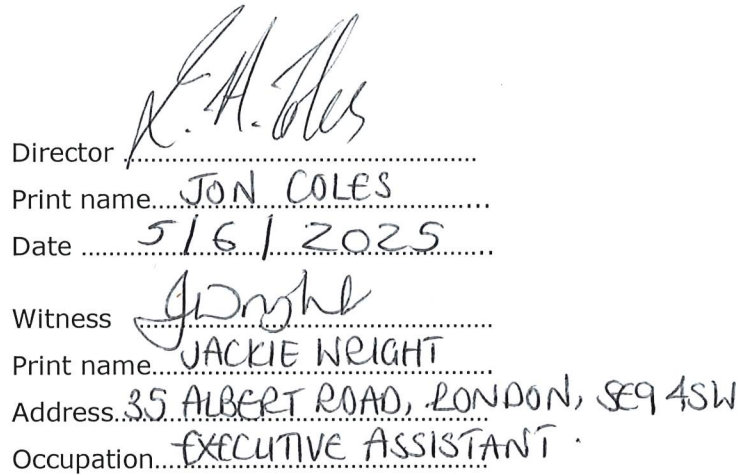 Director J. A. Coles
Print name JON COLES
Date 5/6/2025
Witness JWright
Print name JACKIE WRIGHT
Address 35 ALBERT ROAD, LONDON, SE9 4SW
Occupation EXECUTIVE ASSISTANT.